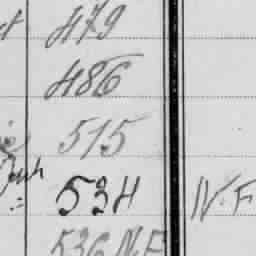 479
486
515
534 N.F
536 N.F